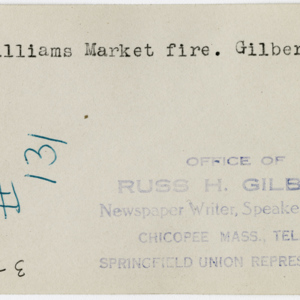 lliams Market fire. Gilber
# 131
OFFICE OF
RUSS H. GILB
Newspaper Writer, Speake
CHICOPEE MASS., TEL
SPRINGFIELD UNION REPRES
3-